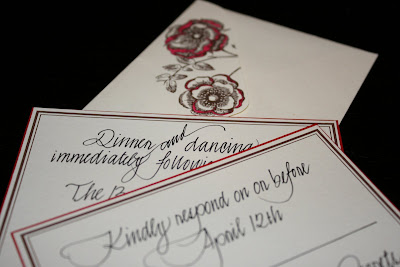 Dinner and dancing
immediately
The
Kindly respond on or before
April 12th